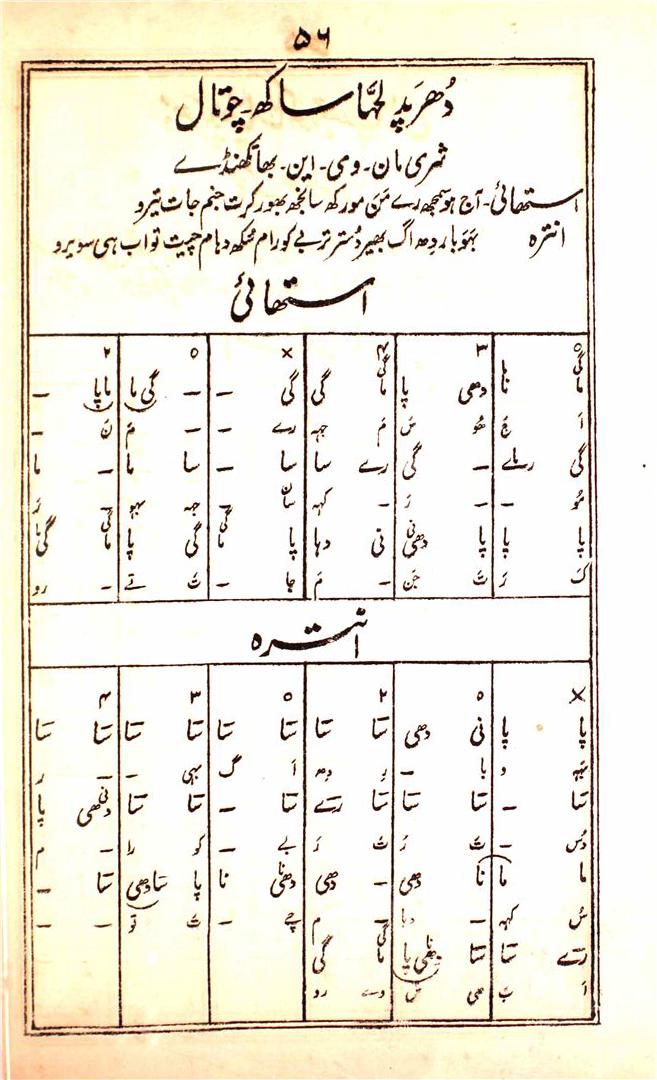 ۵۶
دُھرپَد لچھّا ساکھ۔ چوتال
شری مان۔ وی۔ این۔ بھاتکھنڈے
استھائی۔ آج ہو سمجھ رے مَن مورکھ سانجھ بھور کرت جنم جات تیرو
انترہ بہَو بار دِھ اگ بھیر دُستر تربے کو رام سُکھ دہام چیت تو اب ہی سویرو
استھائی
۰ ۳ ۴ × ۰ ۲
ما نا دھی پا ما گی گی – – گی ما ما پا –
اَ جَ ھُو سَ مَ جہ رے – – مَ نَ –
گی رے – گی رے سا سا – سا ما – ما
مُو – – رَ – کہہ سا جہ بہو – رَ
پا پا پا دھی نی دہا پا ما گی پا ما گی
کَ رَ تَ جَن – مَ جا – تَ تے – رو
انترہ
× ۰ ۲ ۰ ۳ ۴
پا پا نی دھی سَا سَا سَا سَا سَا سَا سَا سَا
بہہ و با – رِ دِھ اَ گ بہی – – ر
سَا – سَا سَا سَا رَے سَا – سَا سَا دھی پا
دُس – تَ رَ تَ رَ بے – کو را – م
ما ما نا دھی – دھی دھی نا پا سَادھی سَا –
سُ کہہ – دہا – م چے – تَ تو – –
رَے سَا سَا دھی پا ما گی
اَ بَ ھی سَ وے رو